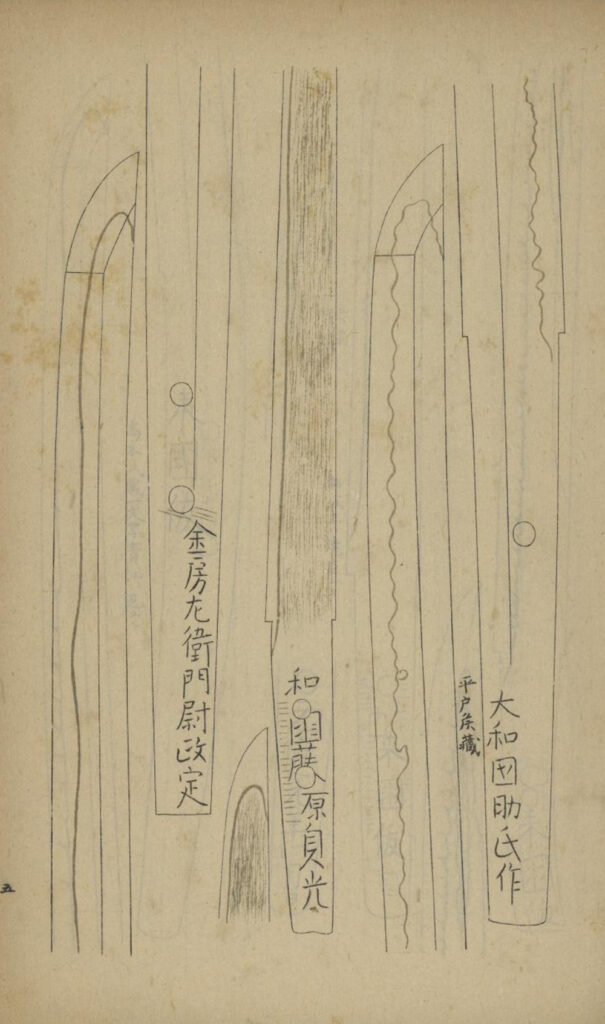 大和国助氏作
平戸侯藏
和國藤原貞光
金房左衛門尉政定
五